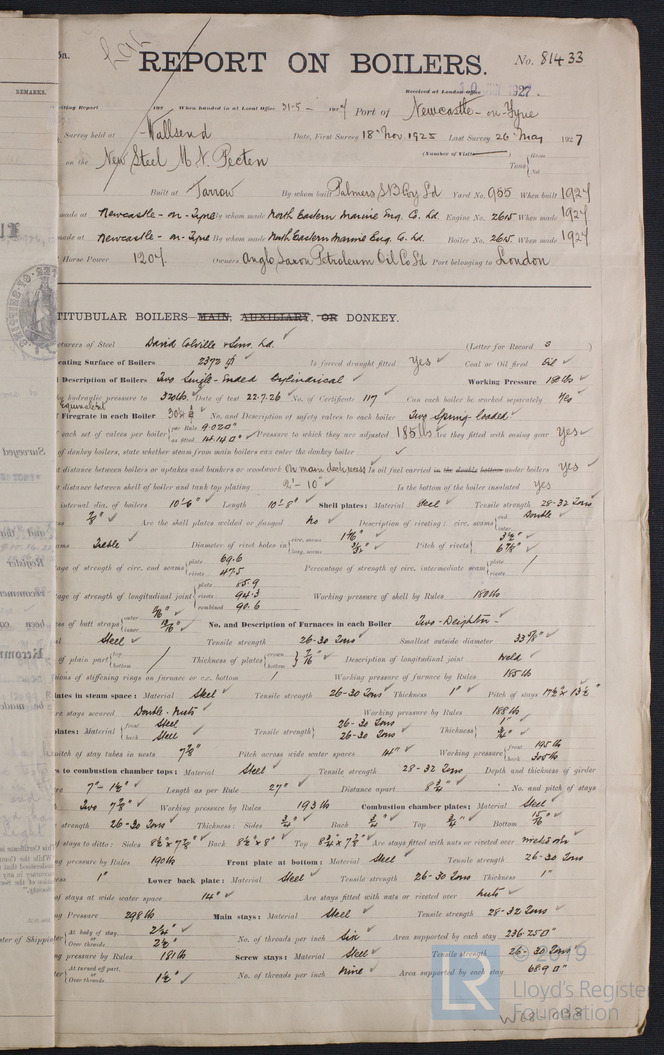 5n. REPORT ON BOILERS. No. 81433
REMARKS.
Received at London Office 1927
ting Report 192 When handed in at Local Office 31-5- 1927 Port of Newcastle-on-Tyne
Survey held at Wallsend Date, First Survey 18 Nov. 1925 Last Survey 26 May 1927
on the New Steel M.V. Pecten (Number of Visits) Tons Gross Net
Built at Jarrow By whom built Palmers S.B. Coy Ld Yard No. 955 When built 1927
made at Newcastle-on-Tyne By whom made North Eastern Marine Eng. Co. Ld. Engine No. 2615 When made 1927
made at Newcastle-on-Tyne By whom made North Eastern Marine Eng. Co. Ld. Boiler No. 2615 When made 1927
Horse Power 1207. Owners Anglo Saxon Petroleum Oil Co Ld Port belonging to London
TITUBULAR BOILERS—MAIN, AUXILIARY, OR DONKEY.
turers of Steel David Colville & Sons, Ld. (Letter for Record S
eating Surface of Boilers 2372 Is forced draught fitted Yes Coal or Oil fired Oil
Description of Boilers Two Single-Ended Cylindrical Working Pressure 180 lbs
by hydraulic pressure to 320 lbs. Date of test 22.7.26 No. of Certificate 117 Can each boiler be worked separately Yes
Equivalent
Firegrate in each Boiler No. and Description of safety valves to each boiler Two Spring loaded
each set of valves per boiler per Rule 9.020" as fitted 14.140" Pressure to which they are adjusted 185 lbs Are they fitted with easing gear Yes
of donkey boilers, state whether steam from main boilers can enter the donkey boiler
distance between boilers or uptakes and bunkers or woodwork On main deck Is oil fuel carried in the double bottom under boilers Yes
distance between shell of boiler and tank top plating 2'-10" Is the bottom of the boiler insulated yes
internal dia. of boilers 10'-6" Length 10'-8" Shell plates: Material Steel Tensile strength 28-32 Tons
7/8" Are the shell plates welded or flanged No Description of riveting: circ. seams end Double inter.
ams Treble Diameter of rivet holes in circ. seams 1 1/16" long. seams Pitch of rivets 3 1/2" 6 7/8"
age of strength of circ. end seams plate 69.6 rivets 47.5 Percentage of strength of circ. intermediate seam plate rivets
age of strength of longitudinal joint plate 85.9 rivets 94.3 combined 90.6 Working pressure of shell by Rules 180 lbs
ss of butt straps outer inner No. and Description of Furnaces in each Boiler Two-Deighton-
Steel Tensile strength 26-30 Tons Smallest outside diameter
of plain part top bottom Thickness of plates crown bottom Description of longitudinal joint Weld
ions of stiffening rings on furnace or c.c. bottom Working pressure of furnace by Rules 185 lb
lates in steam space: Material Steel Tensile strength 26-30 Tons Thickness 1" Pitch of stays 17 1/2" x 13 1/2"
re stays secured Double Nuts Working pressure by Rules 188 lb
plates: Material front Steel back Steel Tensile strength 26-30 Tons 26-30 Tons Thickness 1" 3/4"
pitch of stay tubes in nests 7 7/8" Pitch across wide water spaces 14" Working pressure front 195 lb back 300 lb
s to combustion chamber tops: Material Steel Tensile strength 28-32 Tons Depth and thickness of girder
re 7"- 1 1/2" Length as per Rule 27" Distance apart 8 3/4" No. and pitch of stays
Two 7 7/8" Working pressure by Rules 193 lb Combustion chamber plates: Material Steel
strength 26-30 Tons Thickness: Sides 3/4" Back 3/4" Top 3/4" Bottom 15/16"
stays to ditto: Sides 8 1/2" x 7 7/8" Back 8 1/2" x 8" Top 8 3/4" x 7 7/8" Are stays fitted with nuts or riveted over
ng pressure by Rules 190 lb Front plate at bottom: Material Steel Tensile strength 26-30 Tons
ess 1" Lower back plate: Material Steel Tensile strength 26-30 Tons Thickness 1"
of stays at wide water space 14" Are stays fitted with nuts or riveted over Nuts
ng Pressure 298 lb Main stays: Material Steel Tensile strength 28-32 Tons
ter At body of stay, or Over threads 2 1/4" 2 1/2" No. of threads per inch Six Area supported by each stay 236.250"
ng pressure by Rules 181 lb Screw stays: Material Steel Tensile strength 26-30 Tons
ter At turned off part, or Over threads 1 1/2" No. of threads per inch Nine Area supported by each stay 68.90"
© 2019
LR Lloyd's Register Foundation
W68-0138